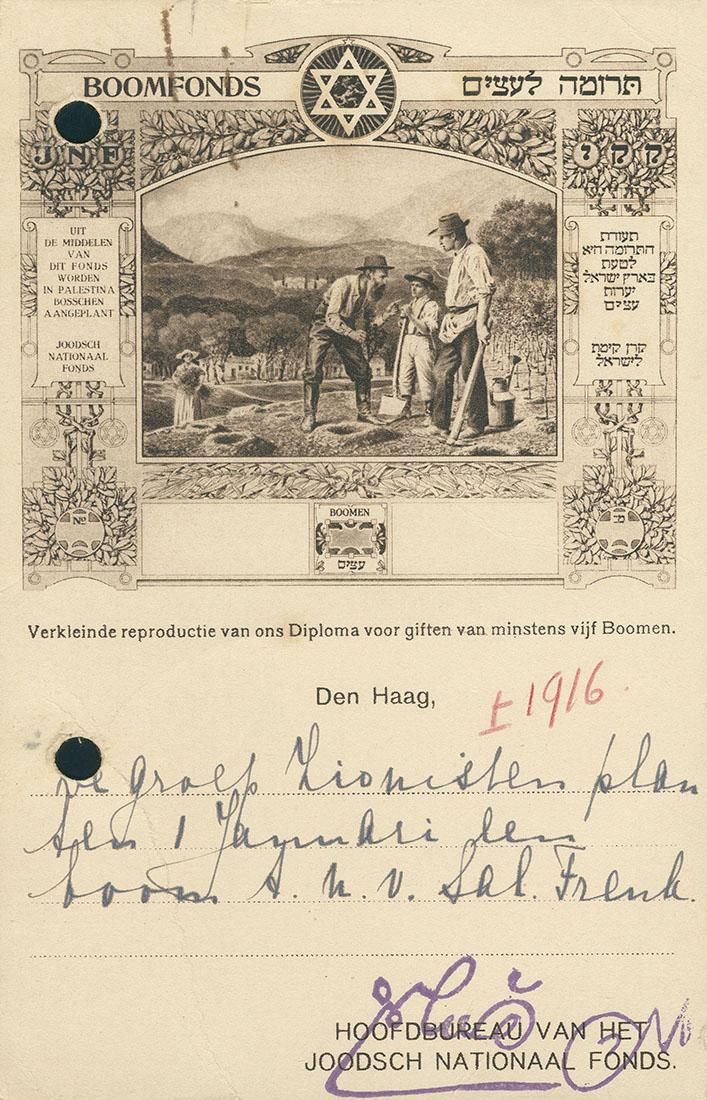 BOOMFONDS
תרומה לעצים
J N F
ק ק י
UIT
DE MIDDELEN
VAN
DIT FONDS
WORDEN
IN PALESTINA
BOSSCHEN
AANGEPLANT
JOODSCH
NATIONAAL
FONDS
תעודת
התרומה היא
לטעת
בארץ ישראל
יערות
עצים
קרן קימת
לישראל
No
BOOMEN
עצים
מס
Verkleinde reproductie van ons Diploma voor giften van minstens vijf Boomen.
Den Haag,
± 1916.
De groep Zionisten plan
ten 1 Januari een
boom t. n. v. Sal. Frenk.
HOOFDBUREAU VAN HET
JOODSCH NATIONAAL FONDS.